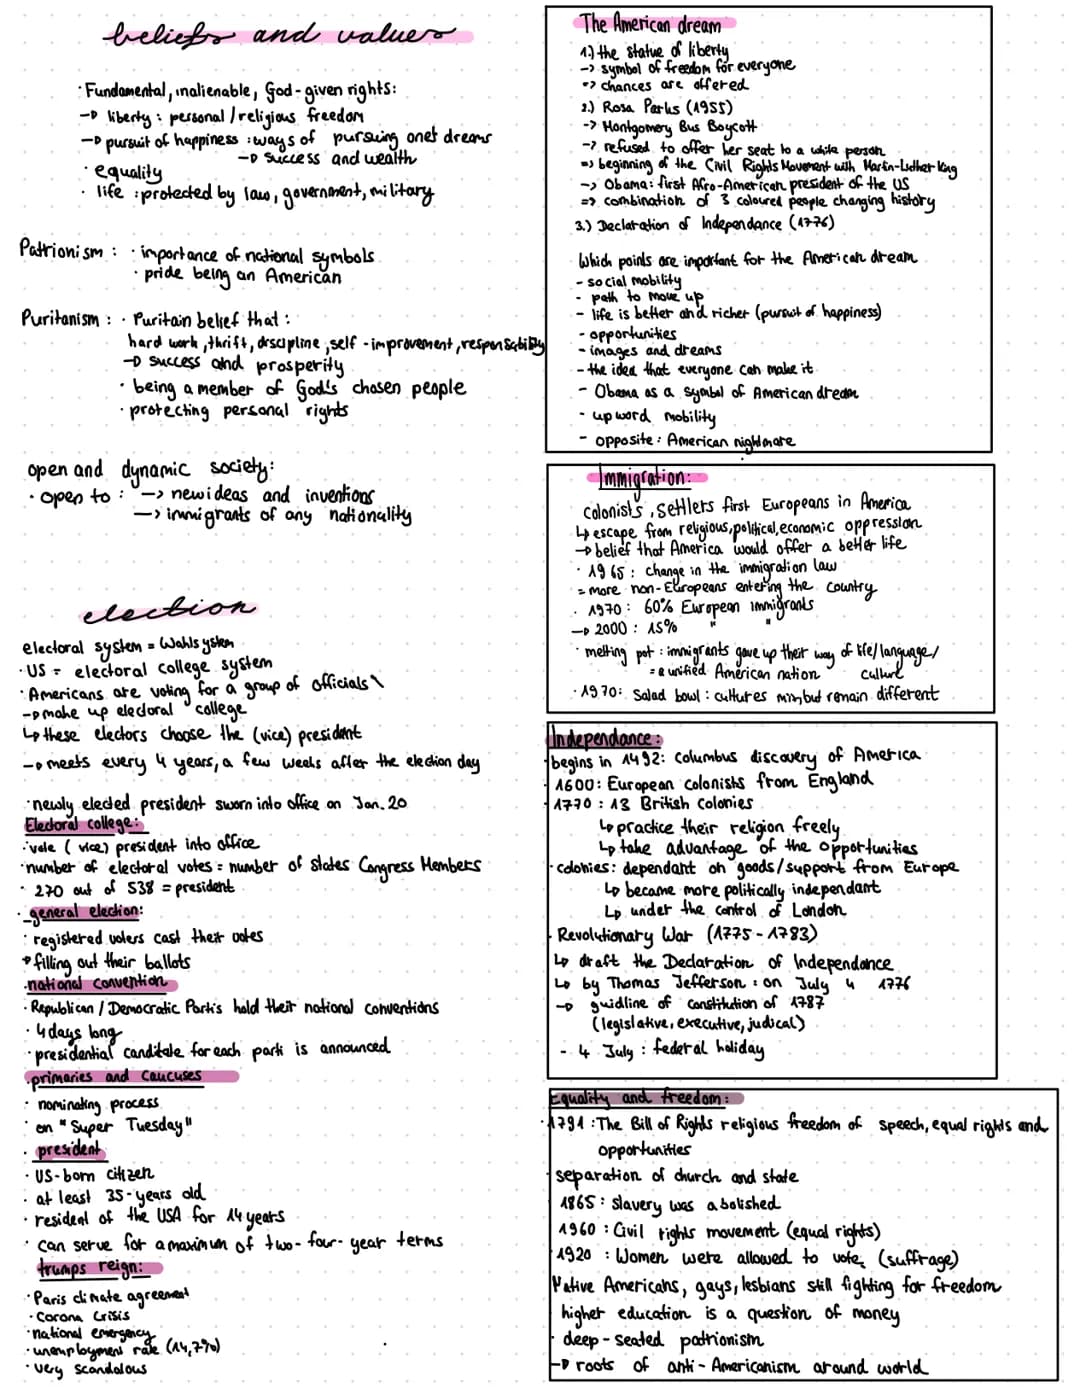 beliefs and values
· Fundamental, inalienable, God-given rights:
→ liberty : personal / religious freedom
→ pursuit of happiness : ways of pursuing onet dreams
→ success and wealth
· equality
· life : protected by law, government, military
Patrionism : · importance of national symbols
· pride being an American
Puritanism : · Puritain belief that :
hard work, thrift, discipline, self-improvement, responsability
→ success and prosperity
· being a member of God's chosen people
· protecting personal rights
open and dynamic society:
· open to : → new ideas and inventions
→ immigrants of any nationality
election
electoral system = Wahlsystem
· US = electoral college system
· Americans are voting for a group of officials
→ make up electoral college
↳ these electors choose the (vice) president
→ meets every 4 years, a few weeks after the election day
· newly elected president sworn into office on Jan. 20
Electoral college:
· vote (vice) president into office
· number of electoral votes = number of states Congress Members
· 270 out of 538 = president
· general election:
· registered voters cast their votes
· filling out their ballots
· national convention
· Republican / Democratic Partis hold their national conventions
· 4 days long
· presidential canditate for each parti is announced
· primaries and caucuses
· nominating process
· on "Super Tuesday"
· president
· US-born citizen
· at least 35-years old
· resident of the USA for 14 years
· can serve for a maximum of two-four-year terms
trumps reign:
· Paris climate agreement
· Corona Crisis
· national emergency
· unemployment rate (14,7%)
· very scandalous
The American dream
1.) the statue of liberty
-> symbol of freedom for everyone
=> chances are offered
2.) Rosa Parks (1955)
-> Montgomery Bus Boycott
-> refused to offer her seat to a white person
=> beginning of the Civil Rights Movement with Martin-Luther King
-> Obama: first Afro-American president of the US
=> combination of 3 coloured people changing history
3.) Declaration of Independance (1776)
Which points are important for the American dream
- social mobility
- path to move up
- life is better and richer (pursuit of happiness)
- opportunities
- images and dreams
- the idea that everyone can make it
- Obama as a symbol of American dream
- upword mobility
- opposite: American nightmare
Immigration:
colonists, settlers first Europeans in America
↳ escape from religious, political, economic oppression
→ belief that America would offer a better life
· 1965: change in the immigration law
= more non-Europeans entering the country
· 1970: 60% European immigrants
→ 2000: 15% " "
· melting pot : immigrants gave up their way of life / language /
= a unified American nation culture
· 1970: Salad bowl : cultures mix but remain different
Independance:
begins in 1492: Columbus discovery of America
1600: European colonists from England
1770 : 13 British Colonies
↳ practice their religion freely
↳ take advantage of the opportunities
· colonies: dependant on goods/support from Europe
↳ became more politically independant
↳ under the control of London
Revolutionary War (1775-1783)
↳ draft the Declaration of Independance
↳ by Thomas Jefferson : on July 4 1776
→ guidline of constitution of 1787
(legislative, executive, judical)
- 4 July : federal holiday
Equality and freedom:
· 1791 : The Bill of Rights religious freedom of speech, equal rights and
opportunities
separation of church and state
1865 : Slavery was abolished
1960 : Civil rights movement (equal rights)
1920 : Women were allowed to vote (suffrage)
Native Americans, gays, lesbians still fighting for freedom
higher education is a question of money
deep-seated patrionism
→ roots of anti-Americanism around world